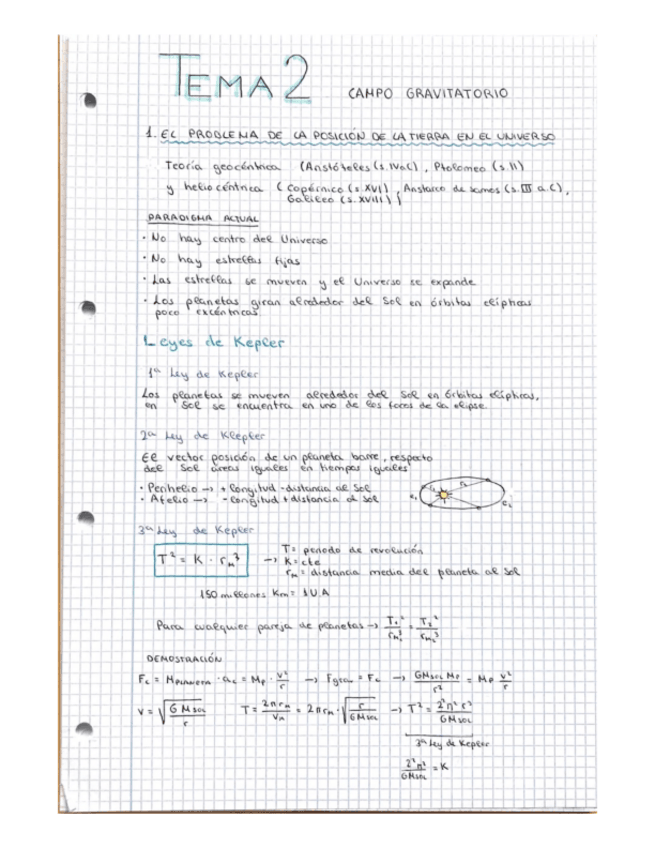 TEMA 2 CAMPO GRAVITATORIO
1. EL PROBLEMA DE LA POSICIÓN DE LA TIERRA EN EL UNIVERSO
Teoría geocéntrica (Aristóteles (s. IV a.C), Ptolomeo (s. II)
y heliocéntrica (Copérnico (s. XVI), Aristarco de Samos (s. III a.C),
Galileo (s. XVIII)
PARADIGMA ACTUAL
· No hay centro del Universo
· No hay estrellas fijas
· Las estrellas se mueven y el Universo se expande
· Los planetas giran alrededor del Sol en órbitas elípticas
poco excéntricas
Leyes de Kepler
1ª Ley de Kepler
Los planetas se mueven alrededor del Sol en órbitas elípticas,
en Sol se encuentra en uno de los focos de la elipse.
2ª Ley de Klepler
El vector posición de un planeta barre, respecto
del Sol áreas iguales en tiempos iguales
· Perihelio → + longitud - distancia al Sol
· Afelio → - longitud + distancia al Sol
3ª Ley de Kepler
T² = K · rₘ³ → T = periodo de revolución
K = cte
rₘ = distancia media del planeta al Sol
150 millones Km = 1 U.A
Para cualquier pareja de planetas → T₁²/rₘ₁³ = T₂²/rₘ₂³
DEMOSTRACIÓN
F꜀ = Mplaneta · a꜀ = Mp · v²/r → Fgrav = F꜀ → GMsol Mp/r² = Mp v²/r
v = √(GMsol/r) T = 2πrₘ/vₘ = 2πrₘ · √(r/GMsol) → T² = 2²π²r³/GMsol
3ª Ley de Kepler
2²π²/GMsol = K